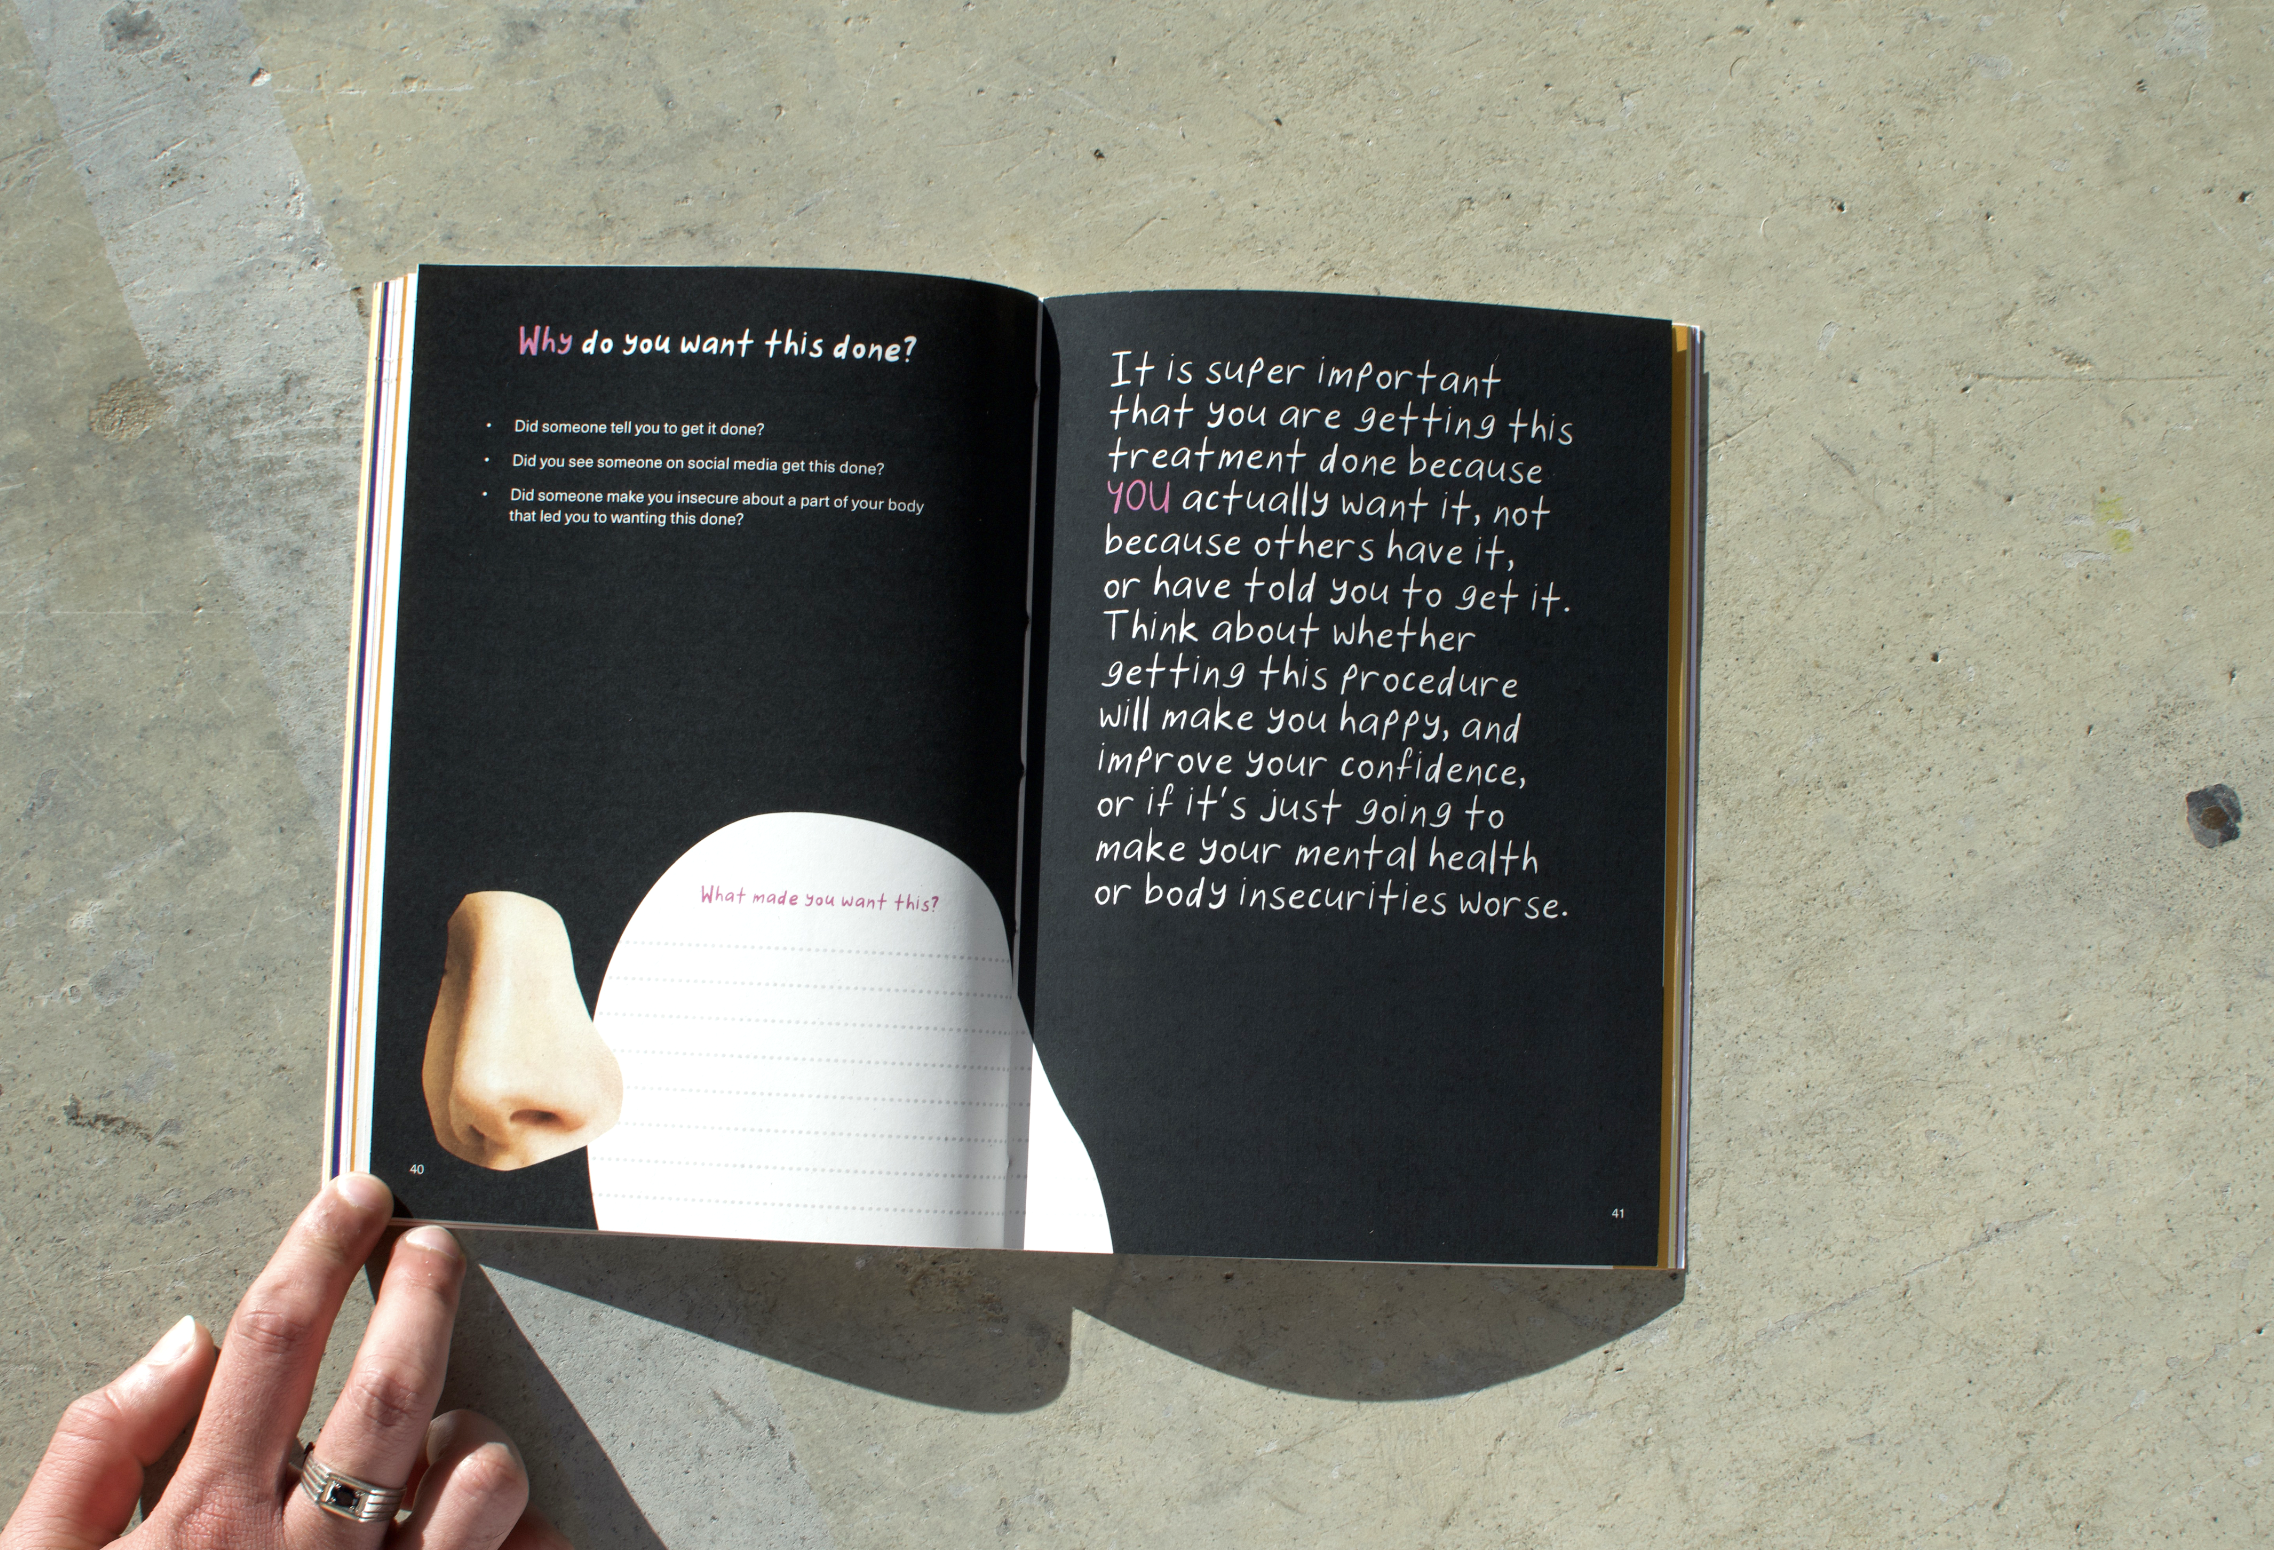 Why do you want this done?
• Did someone tell you to get it done?
• Did you see someone on social media get this done?
• Did someone make you insecure about a part of your body
that led you to wanting this done?
What made you want this?
40
It is super important
that you are getting this
treatment done because
YOU actually want it, not
because others have it,
or have told you to get it.
Think about whether
getting this procedure
will make you happy, and
improve your confidence,
or if it's just going to
make your mental health
or body insecurities worse.
41